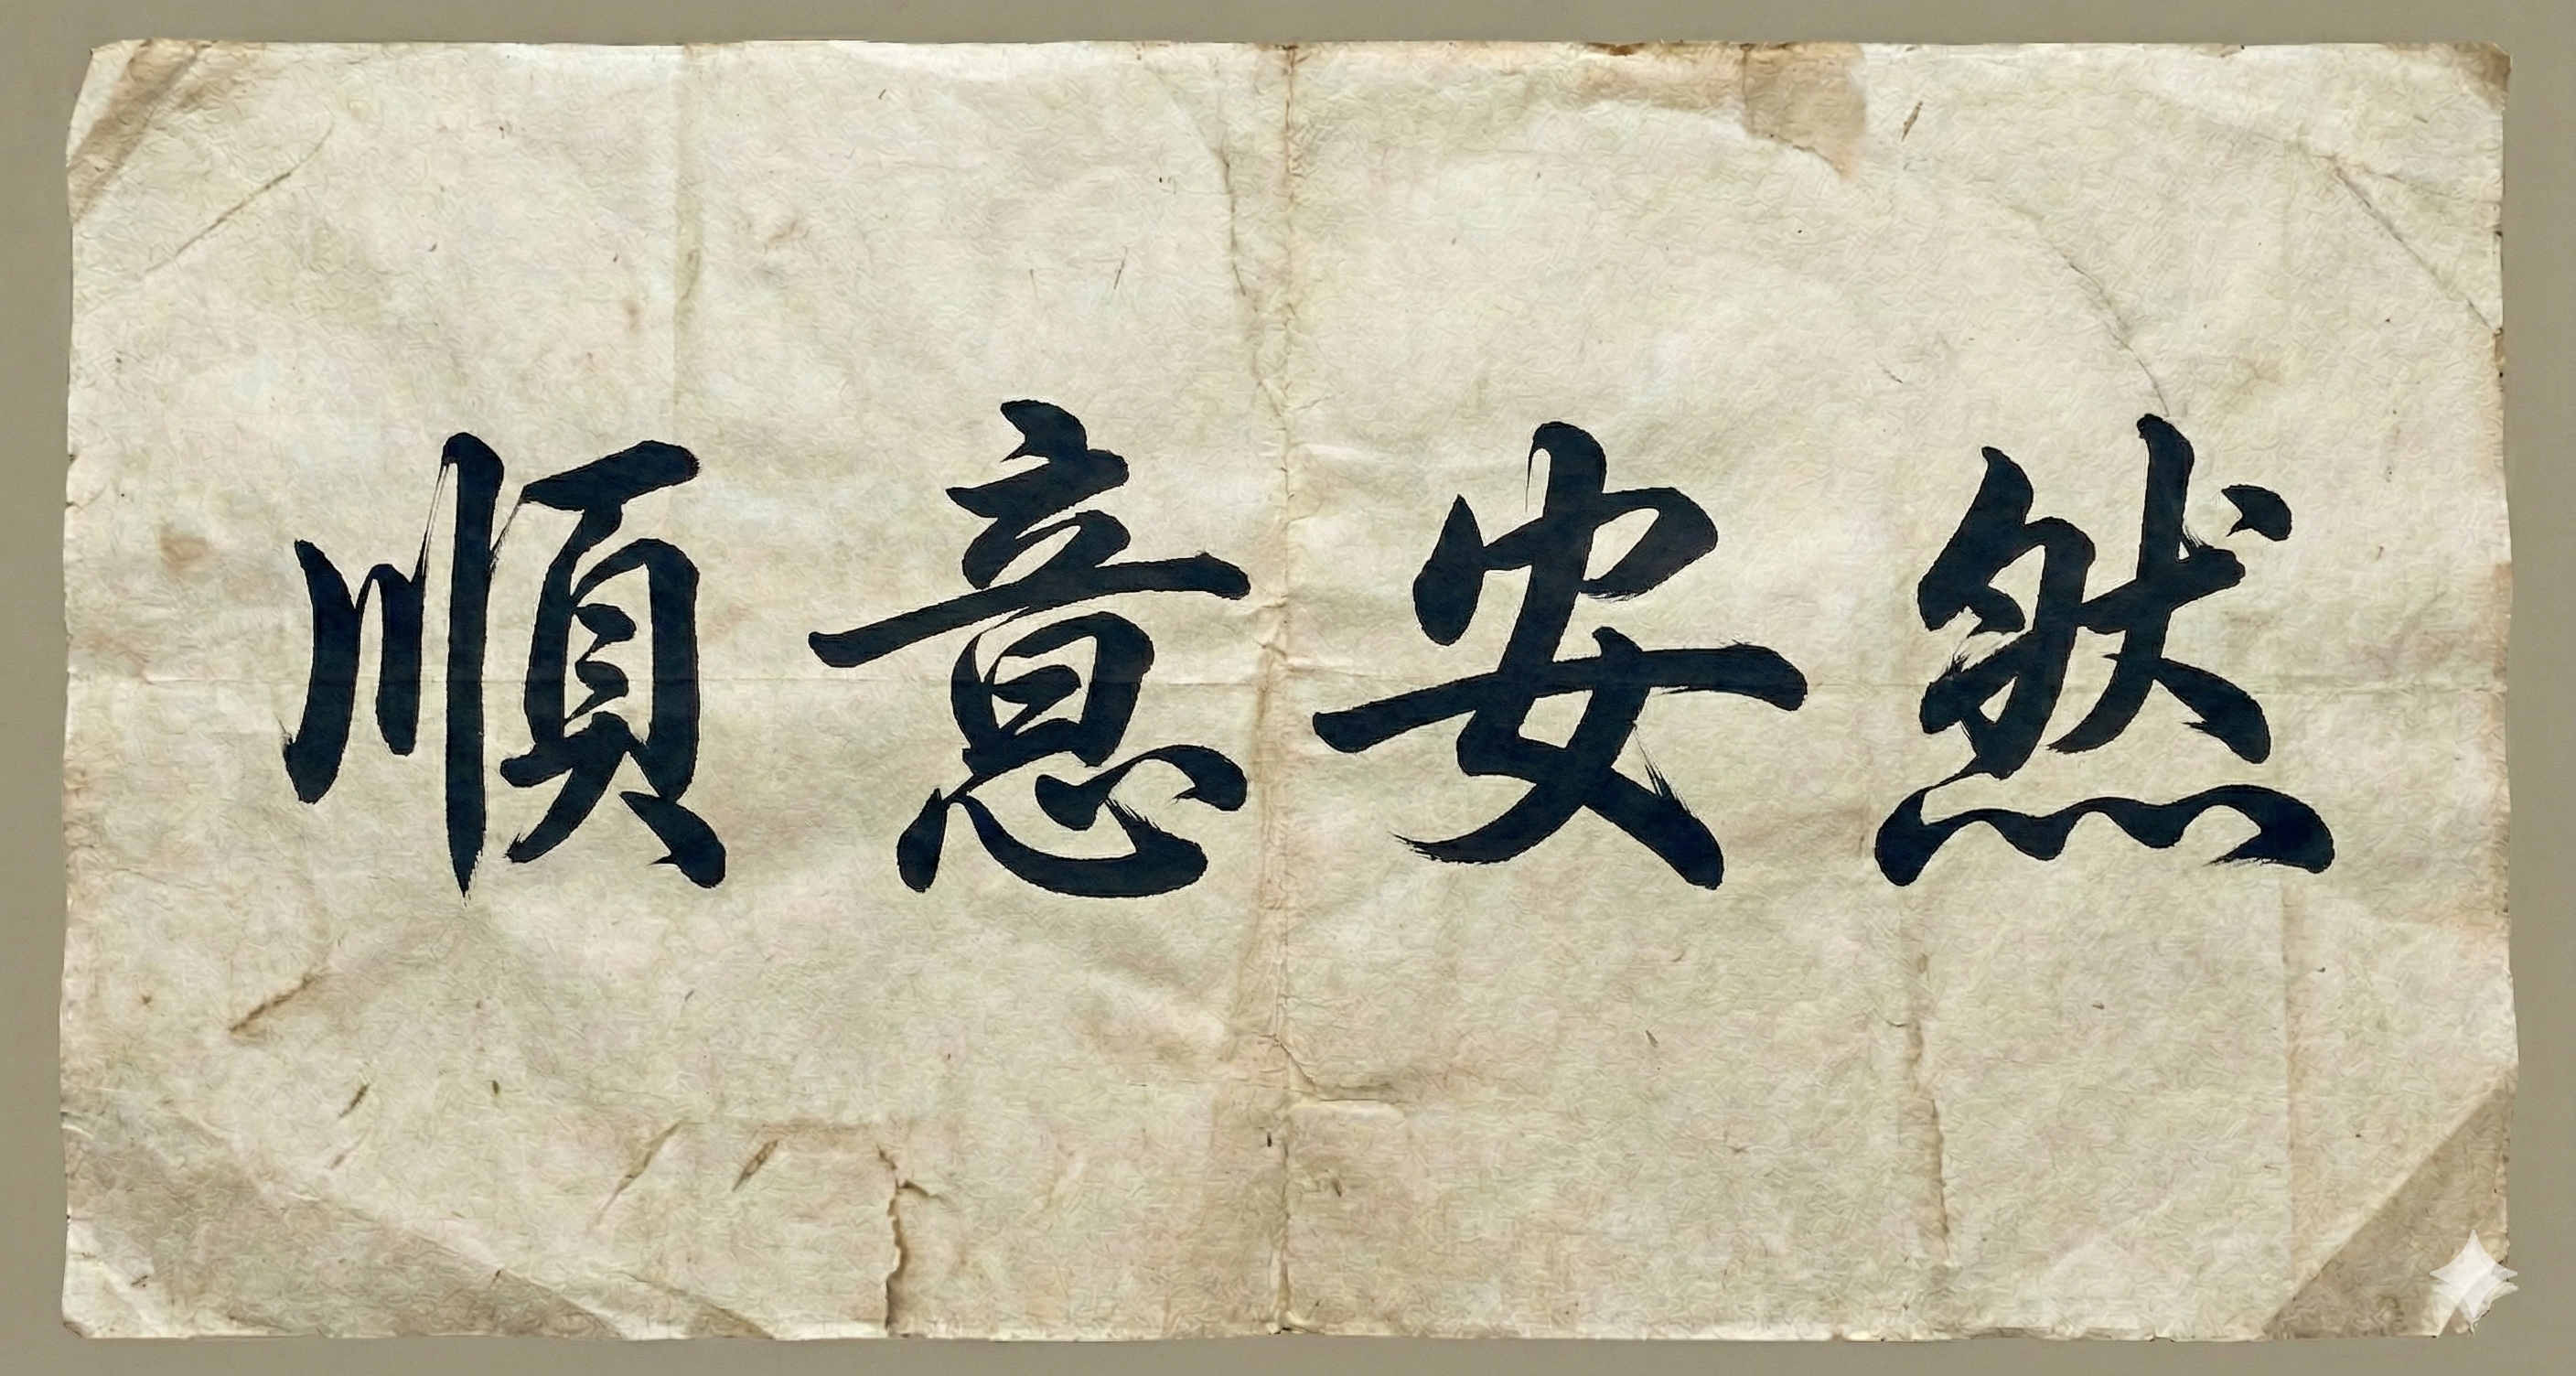 順意安然